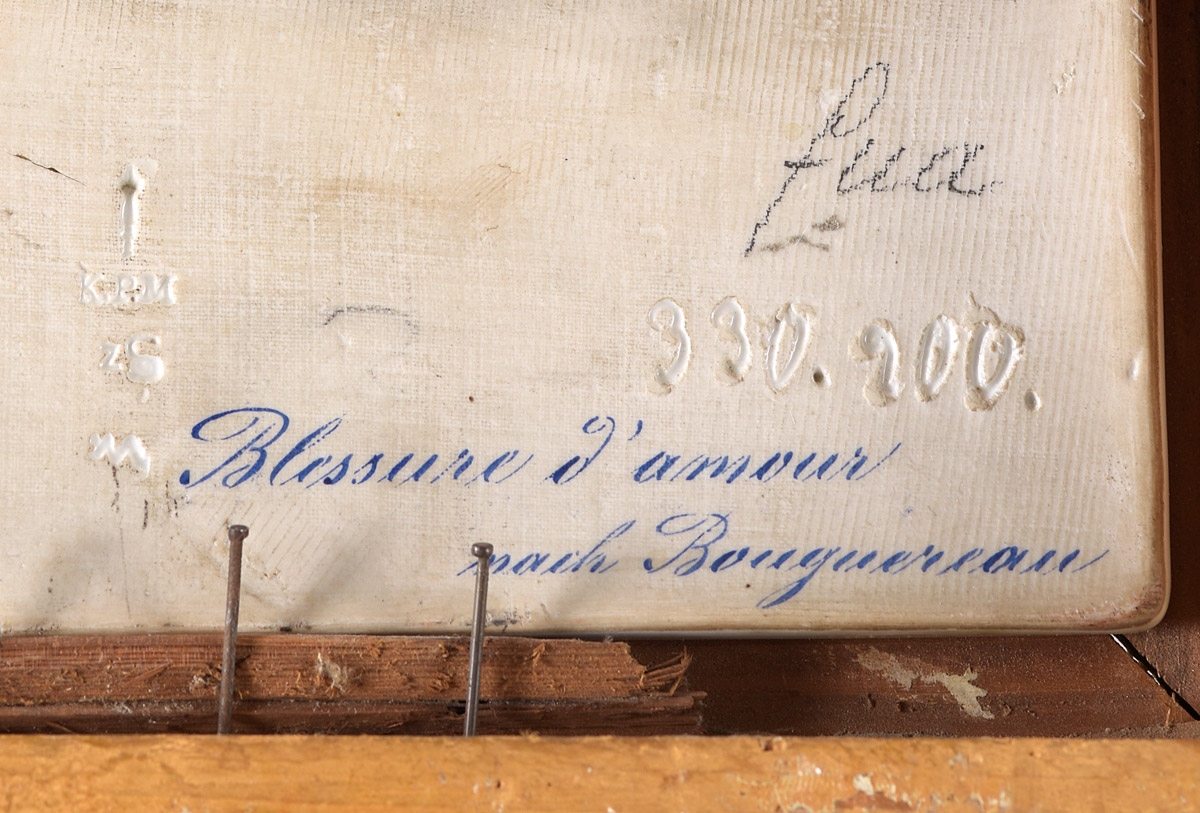 K.P.M
330. 200.
Blessure d'amour
nach Bouguereau